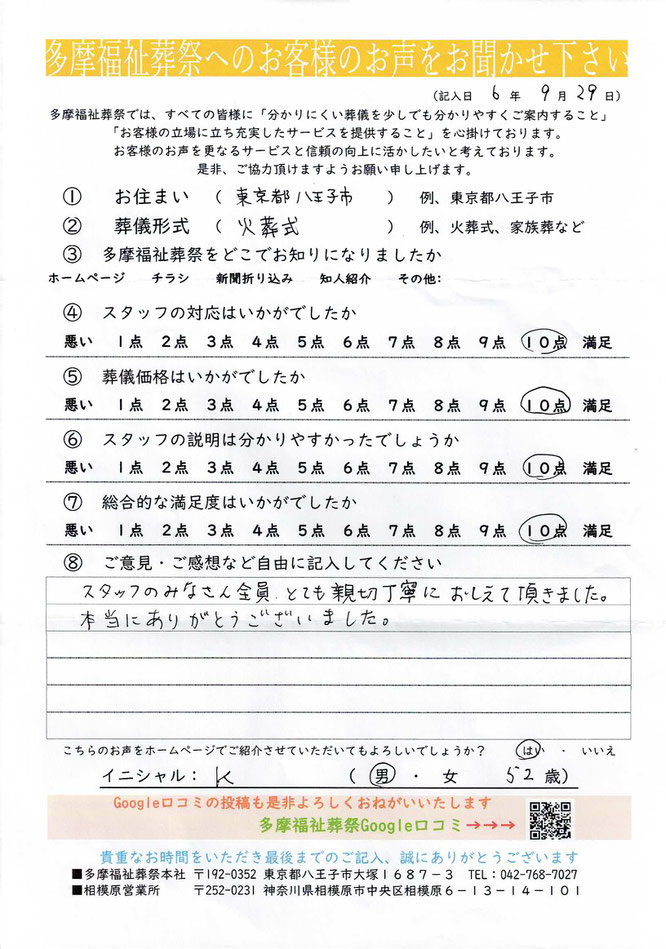 多摩福祉葬祭へのお客様のお声をお聞かせ下さい
(記入日 6 年 9 月 29 日)
多摩福祉葬祭では、すべての皆様に「分かりにくい葬儀を少しでも分かりやすくご案内すること」
「お客様の立場に立ち充実したサービスを提供すること」を心掛けております。
お客様のお声を更なるサービスと信頼の向上に活かしたいと考えております。
是非、ご協力頂けますようお願い申し上げます。
① お住まい ( 東京都八王子市 ) 例、東京都八王子市
② 葬儀形式 ( 火葬式 ) 例、火葬式、家族葬など
③ 多摩福祉葬祭をどこでお知りになりましたか
ホームページ チラシ 新聞折り込み 知人紹介 その他:
④ スタッフの対応はいかがでしたか
悪い 1点 2点 3点 4点 5点 6点 7点 8点 9点 10点 満足
⑤ 葬儀価格はいかがでしたか
悪い 1点 2点 3点 4点 5点 6点 7点 8点 9点 10点 満足
⑥ スタッフの説明は分かりやすかったでしょうか
悪い 1点 2点 3点 4点 5点 6点 7点 8点 9点 10点 満足
⑦ 総合的な満足度はいかがでしたか
悪い 1点 2点 3点 4点 5点 6点 7点 8点 9点 10点 満足
⑧ ご意見・ご感想など自由に記入してください
スタッフのみなさん全員、とても親切丁寧におしえて頂きました。
本当にありがとうございました。
こちらのお声をホームページでご紹介させていただいてもよろしいでしょうか? はい ・ いいえ
イニシャル: K ( 男 ・ 女 52 歳)
Google口コミの投稿も是非よろしくおねがいいたします
多摩福祉葬祭Google口コミ→→→
貴重なお時間をいただき最後までのご記入、誠にありがとうございます
■多摩福祉葬祭本社 〒192-0352 東京都八王子市大塚1687-3 TEL:042-768-7027
■相模原営業所 〒252-0231 神奈川県相模原市中央区相模原6-13-14-101